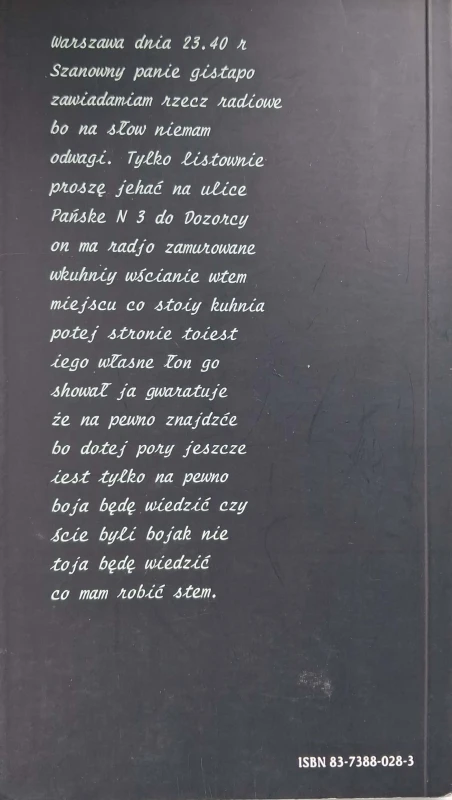 Warszawa dnia 23.40 r
Szanowny panie gistapo
zawiadamiam rzecz radiowe
bo na słow niemam
odwagi. Tylko listownie
proszę jehać na ulice
Pańske N 3 do Dozorcy
on ma radjo zamurowane
wkuhniy wścianie wtem
miejscu co stoiy kuhnia
potej stronie toiest
iego własne łon go
shował ja gwaratuje
że na pewno znajdzće
bo dotej pory jeszcze
iest tylko na pewno
boja będę wiedzić czy
ście byli bojak nie
toja będę wiedzić
co mam robić stem.
ISBN 83-7388-028-3